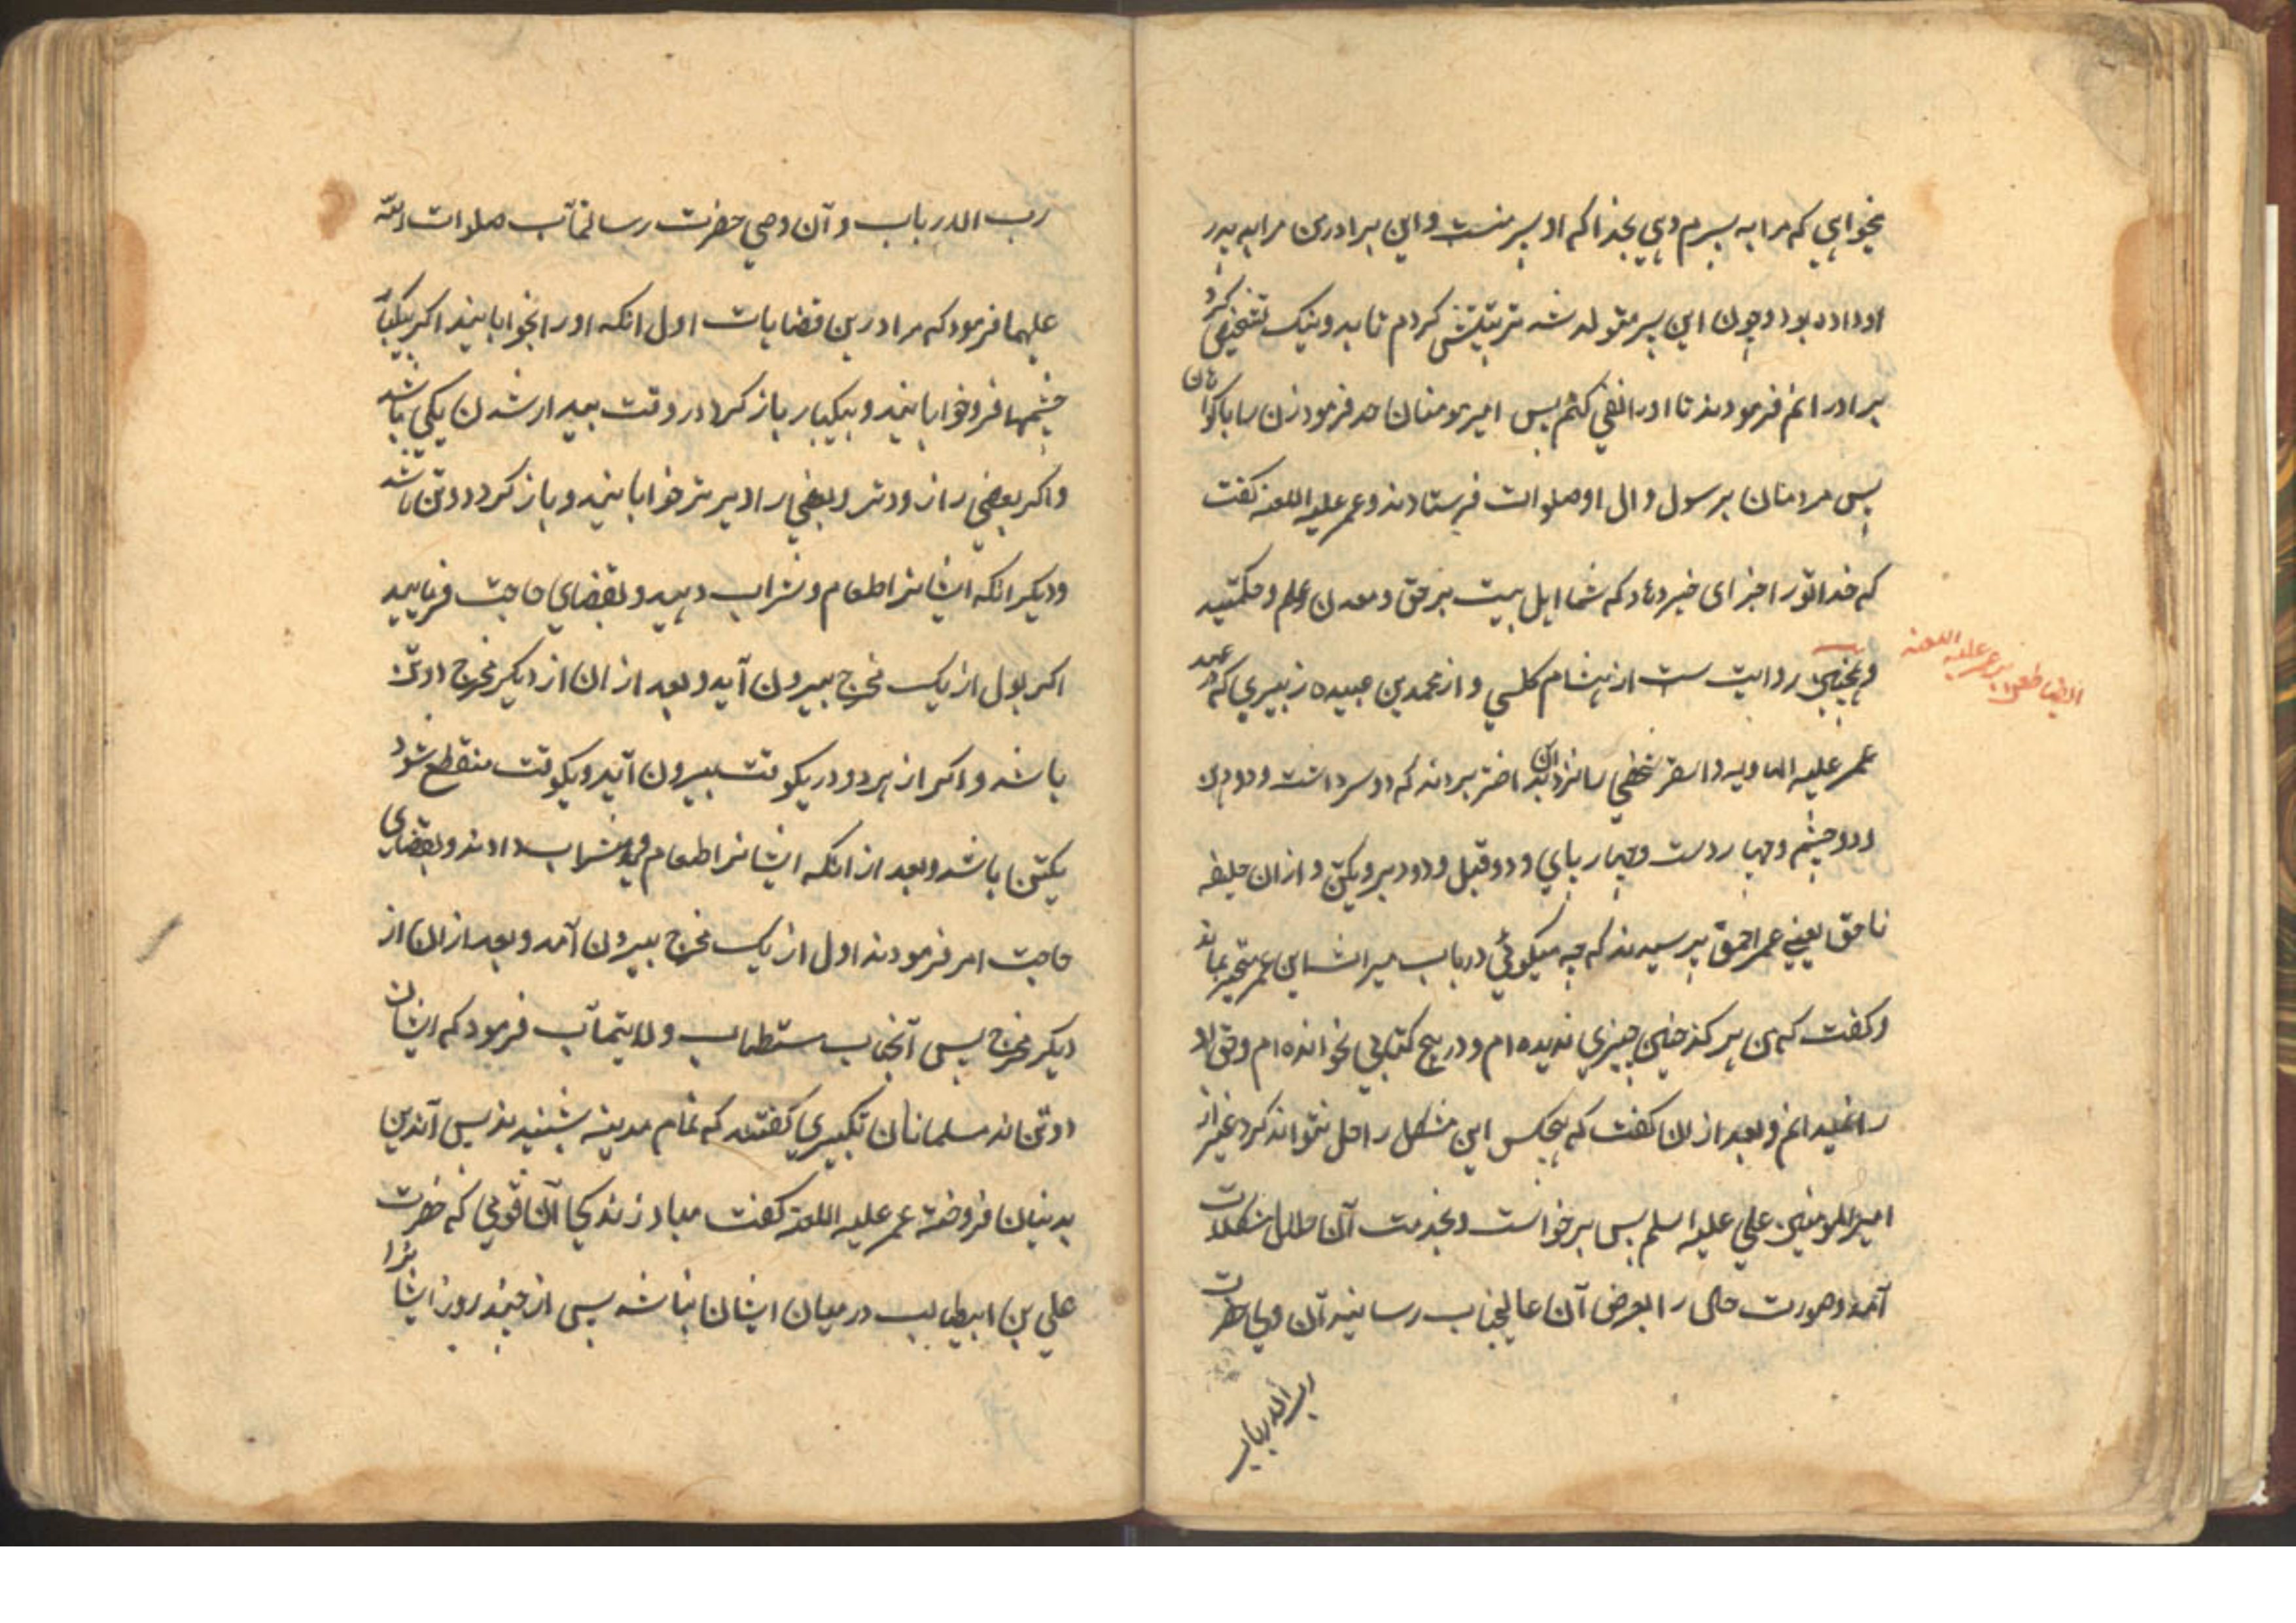 میخواهی که مرا به پسرم دهی بخدا که او پسر منست و این برادرن مرا به پدر
او داده بود و چون این پسر متولد شد تربیتش کردم تا بدو نیک تشخیص کرد
برادرانم فرمودند تا او را نفی کنم پس امیرمومنان حد فرمود زن را با گواهان
پس مردمان بر رسول و ال او صلوات فرستادند و عمر علیه اللعنه کفت
که خدا تورا جزای خیر دهاد که شما اهل بیت بر حق و معدن علم و حکمتید
و همچنین روایت ست از هشام کلبی و از محمد بن عبیده زبیری که در عهد
ایضا طعن بر عمر علیه اللعنه
عمر علیه الهاویه والسقر شخصی را نزد ان بداختر بردند که دو سر داشت و دو دهن
و دو چشم و چهار دست و چهار پای و دو قبل و دو دبر و یکتن و از ان خلیفه
ناحق یعنی عمر احمق پرسیدند که چه میکوئی در باب میراث این عمر متحیر بماند
و کفت که من هرکز چنین چیزی ندیده ام و در هیچ کتابی نخوانده ام و حق
را نمیدانم و بعد از ان کفت که هیچکس این مشکل را حل نتواند کرد غیر از
امیرالمومنین علی علیه اسلم پس برخواست و بخدمت آن حلال مشکلات
آمد و صورت حال را بعرض آن عالیجناب رسانید آن وصی حضرت
رب الارباب
رب الارباب و آن وصی حضرت رسالتمآب صلوات الله
علیهما فرمود که مرا درین قضایات اول انکه او را بخوابانید اکر بیکبار
چشمها فرو خوابانید و بیکبار باز کرد در وقت بیدار شدن یکی باشد
و اکر بعضی را زودتر و بعضی را دیرتر خوابانید و باز کرد دو تن باشد
و دیکر انکه ایشانرا طعام و شراب دهید و بقضای حاجت فرمایید
اکر بول از یک مخرج بیرون آید و بعد از ان از دیکر مخرج دو تن
باشد و اکر از هر دو در یکوقت بیرون آید و یکوقت منقطع شود
یکتن باشد و بعد از انکه ایشانرا طعام و شراب دادند و بقضای
حاجت امر فرمودند اول از یک مخرج بیرون آمد و بعد از ان از
دیکر مخرج پس آنجناب مستطاب ولایتمآب فرمود که ایشان
دو تن اند مسلمانان تکبیری کفتند که تمام مدینه شنیدند پس آندین
بدنیان فروخته عمر علیه اللعنه کفت مباد زندکی آن قومی که حضرت
علی بن ابیطالب در میان ایشان نباشد پس از چند روز ایشانرا